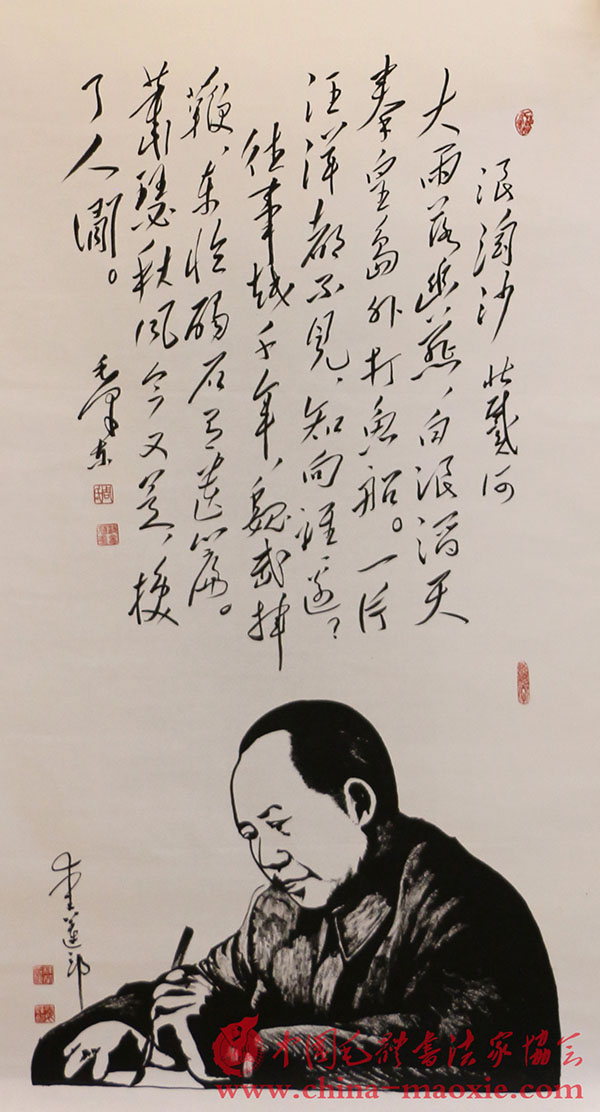 浪淘沙 北戴河
大雨落幽燕,白浪滔天
秦皇岛外打鱼船。一片
汪洋都不见,知向谁边?
往事越千年,魏武挥
鞭,东临碣石有遗篇。
萧瑟秋风今又是,换
了人间。
毛泽东
中国毛體书法家协会
www.china-maoxie.com